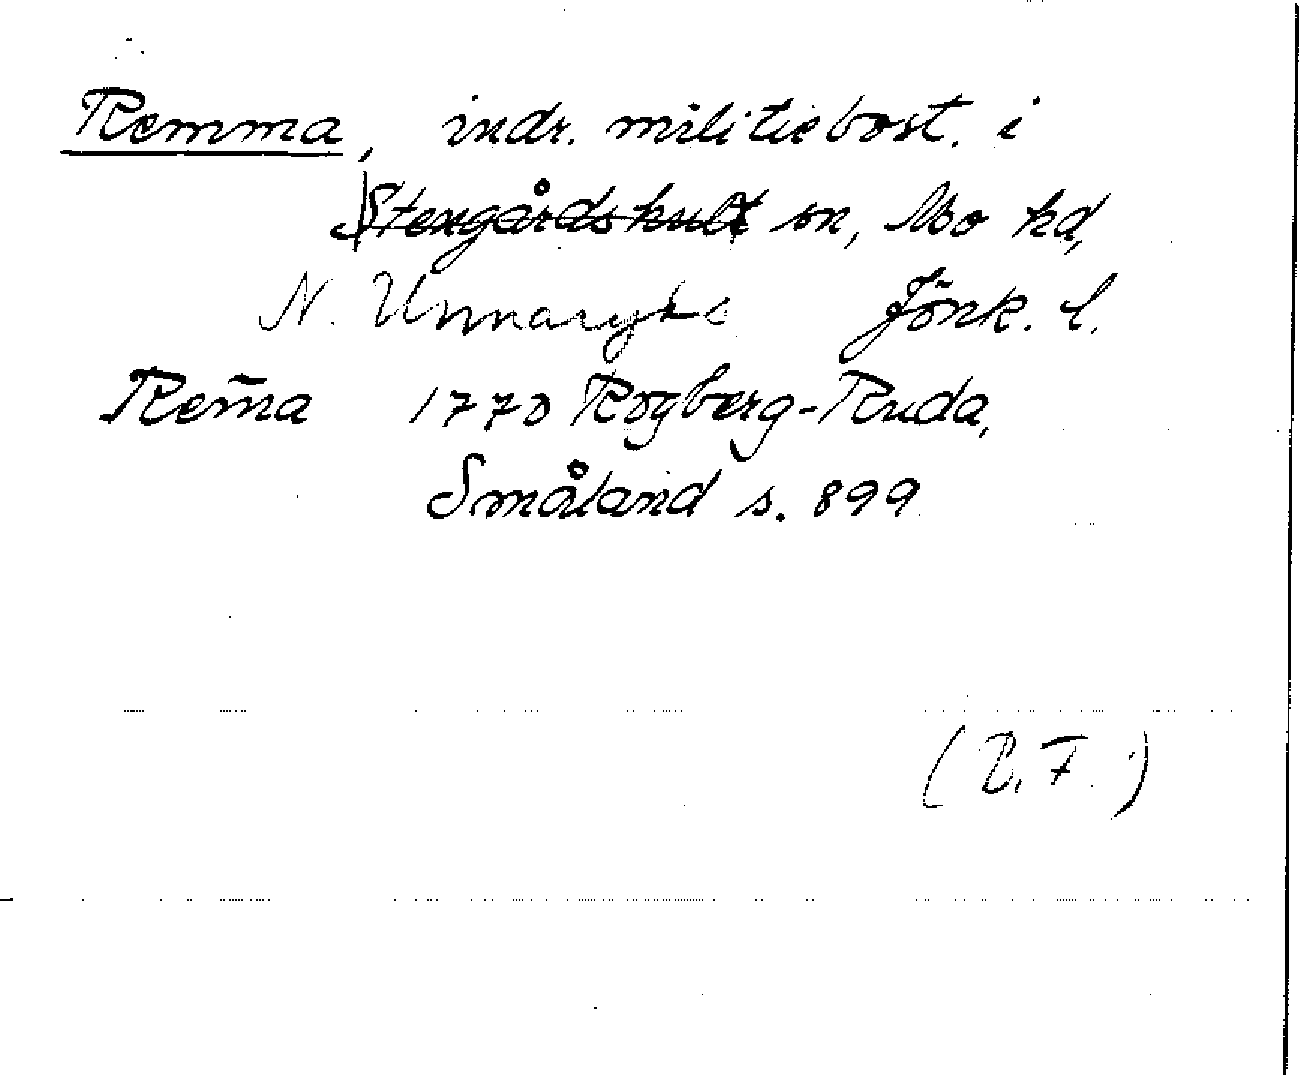 Remma, indr. militiebost. i
Stengårdshult sn, Mo hd,
N. Unnaryds Jönk. l.
Rem̄a 1770 Rogberg-Ruda,
Småland s. 899
(R.F.)